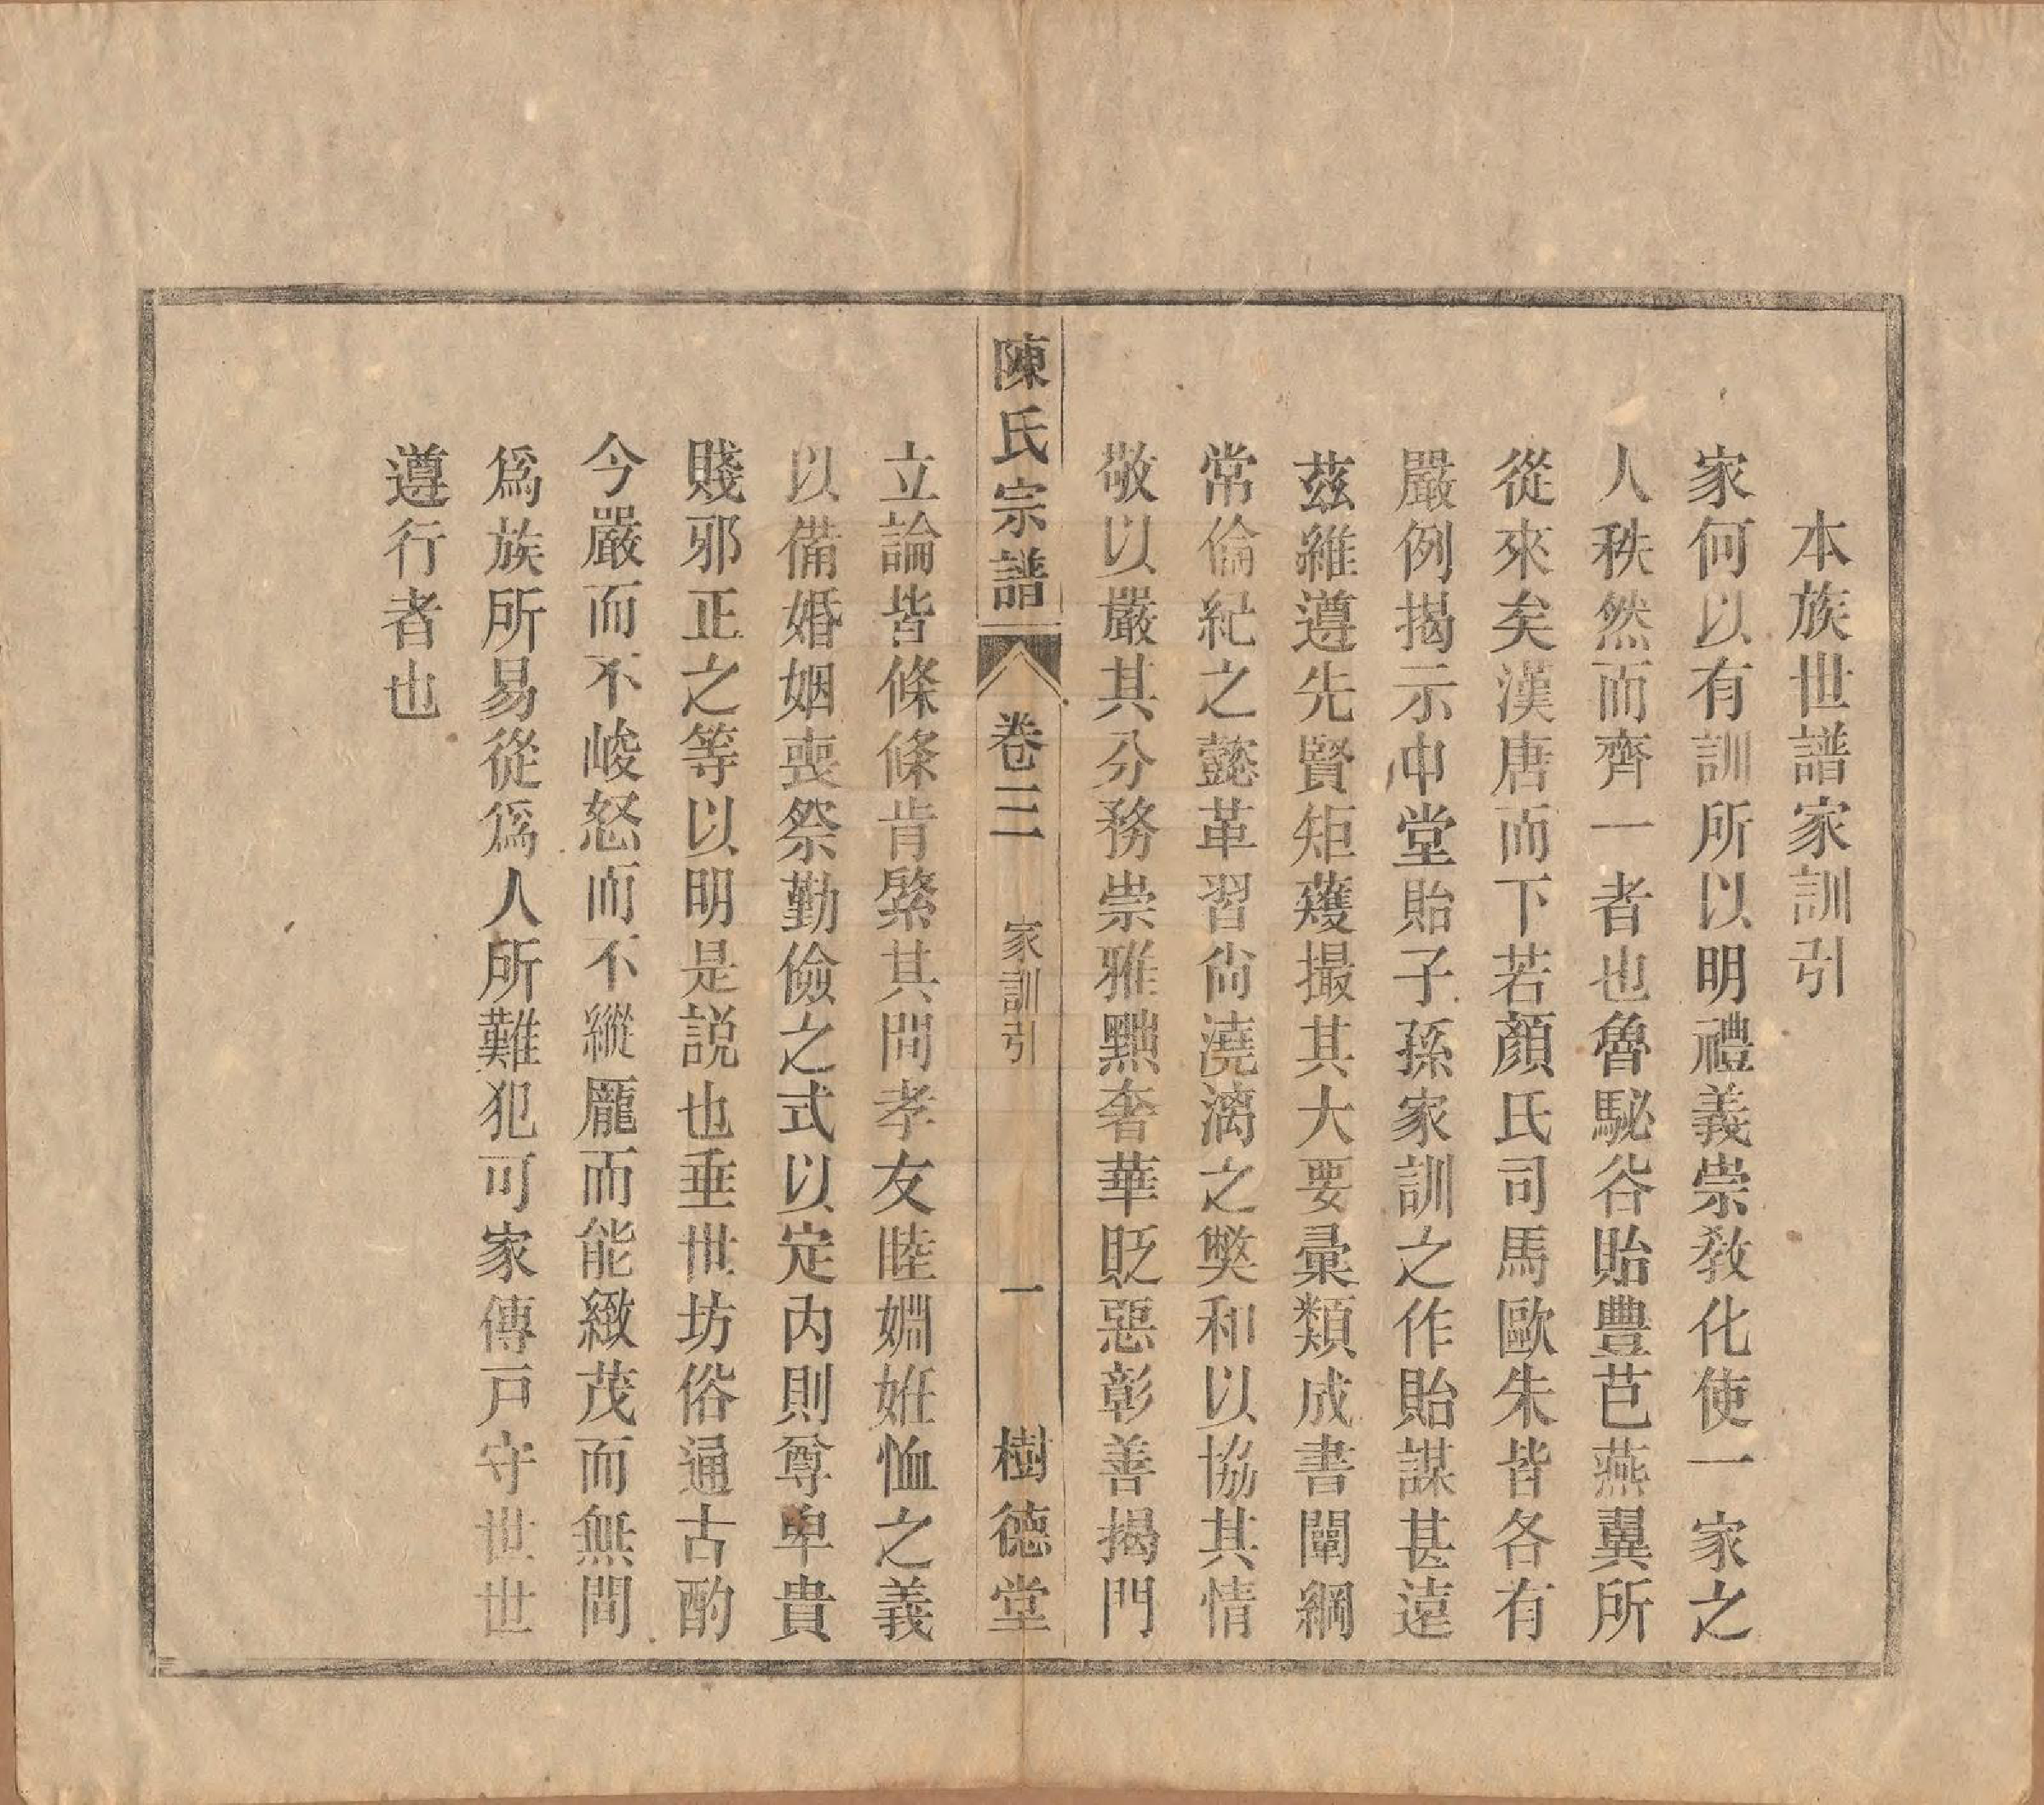 本族世譜家訓引
家何以有訓所以明禮義崇教化使一家之
人秩然而齊一者也魯駜谷貽豐芑燕翼所
從來矣漢唐而下若顏氏司馬歐朱皆各有
嚴例揭示中堂貽子孫家訓之作貽謀甚遠
茲維遵先賢矩蒦撮其大要彙類成書闡綱
常倫紀之懿革習尙澆漓之獘和以協其情
敬以嚴其分務崇雅黜奢華貶惡彰善揭門
陳氏宗譜 卷三 家訓引 一 樹德堂
立論皆條條肯綮其間孝友睦婣姙恤之義
以備婚姻喪祭勤儉之式以定內則尊卑貴
賤邪正之等以明是說也垂世坊俗通古酌
今嚴而不峻怒而不縱龐而能緻茂而無間
爲族所易從爲人所難犯可家傳戸守世世
遵行者也